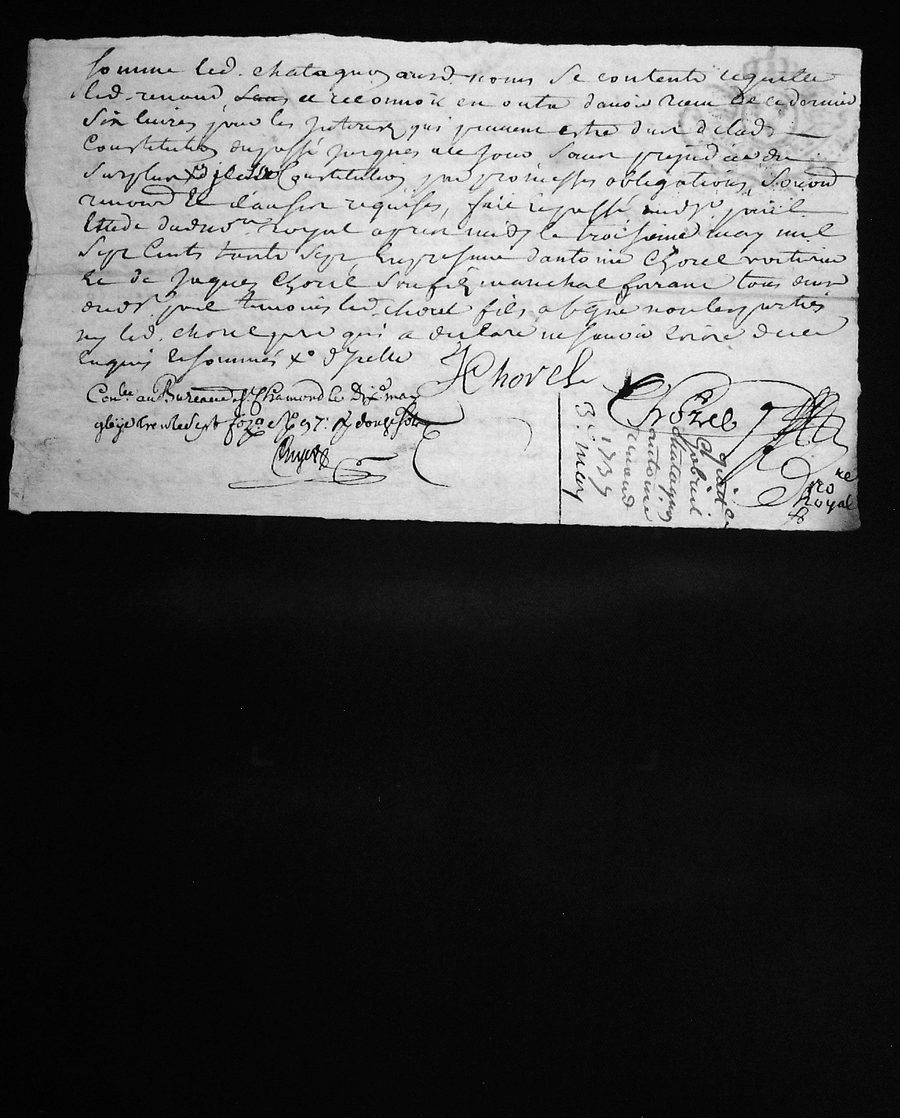 Somme led. chatagnon aud. noms se contente et quitte
led. renaud, et reconnoit en outre davoir receu de ce dernier
Six livres pour les interests qui peuvent estre dus de lad.
Constitution du passé jusques a ce jour, sans prejudice du
Surplus de Constitution par promesses obligations,
renond et clauses requises, fait et passé aud.
Etude dud no.re royal apres midy le troisieme may mil
Sept Cents trente Sept En presence dantoine Chorel voiturier
Et de Jaques Chorel Son fils marechal ferrant tous deux
dud. temoins led. chorel fils a signé non les parties
ny led. chorel pere qui a declaré ne scavoir ecrire de ce
Enquis et sommés
JChorel
Con.le au Bureau de St. Chamond le dix.e may
trente sept f.o 97. R. douze sols
Chorel
no.re
royal
3.e may
1737
quittance
gabriel
chatagnon
antoine
renaud